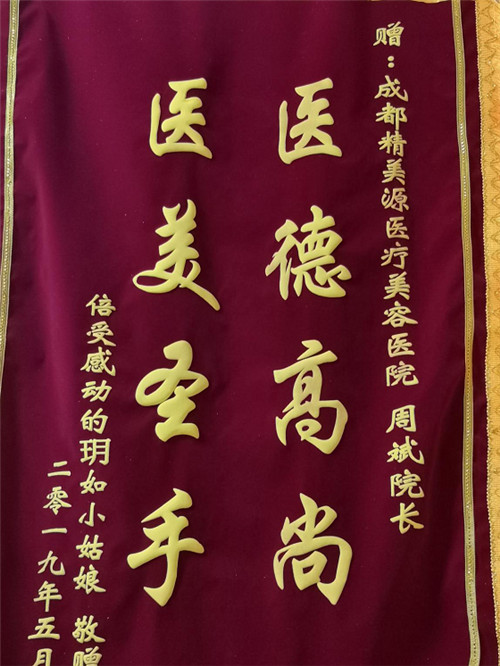 赠：成都精美源医疗美容医院 周斌院长
医德高尚
医美圣手
倍受感动的玥如小姑娘 敬赠
二零一九年五月